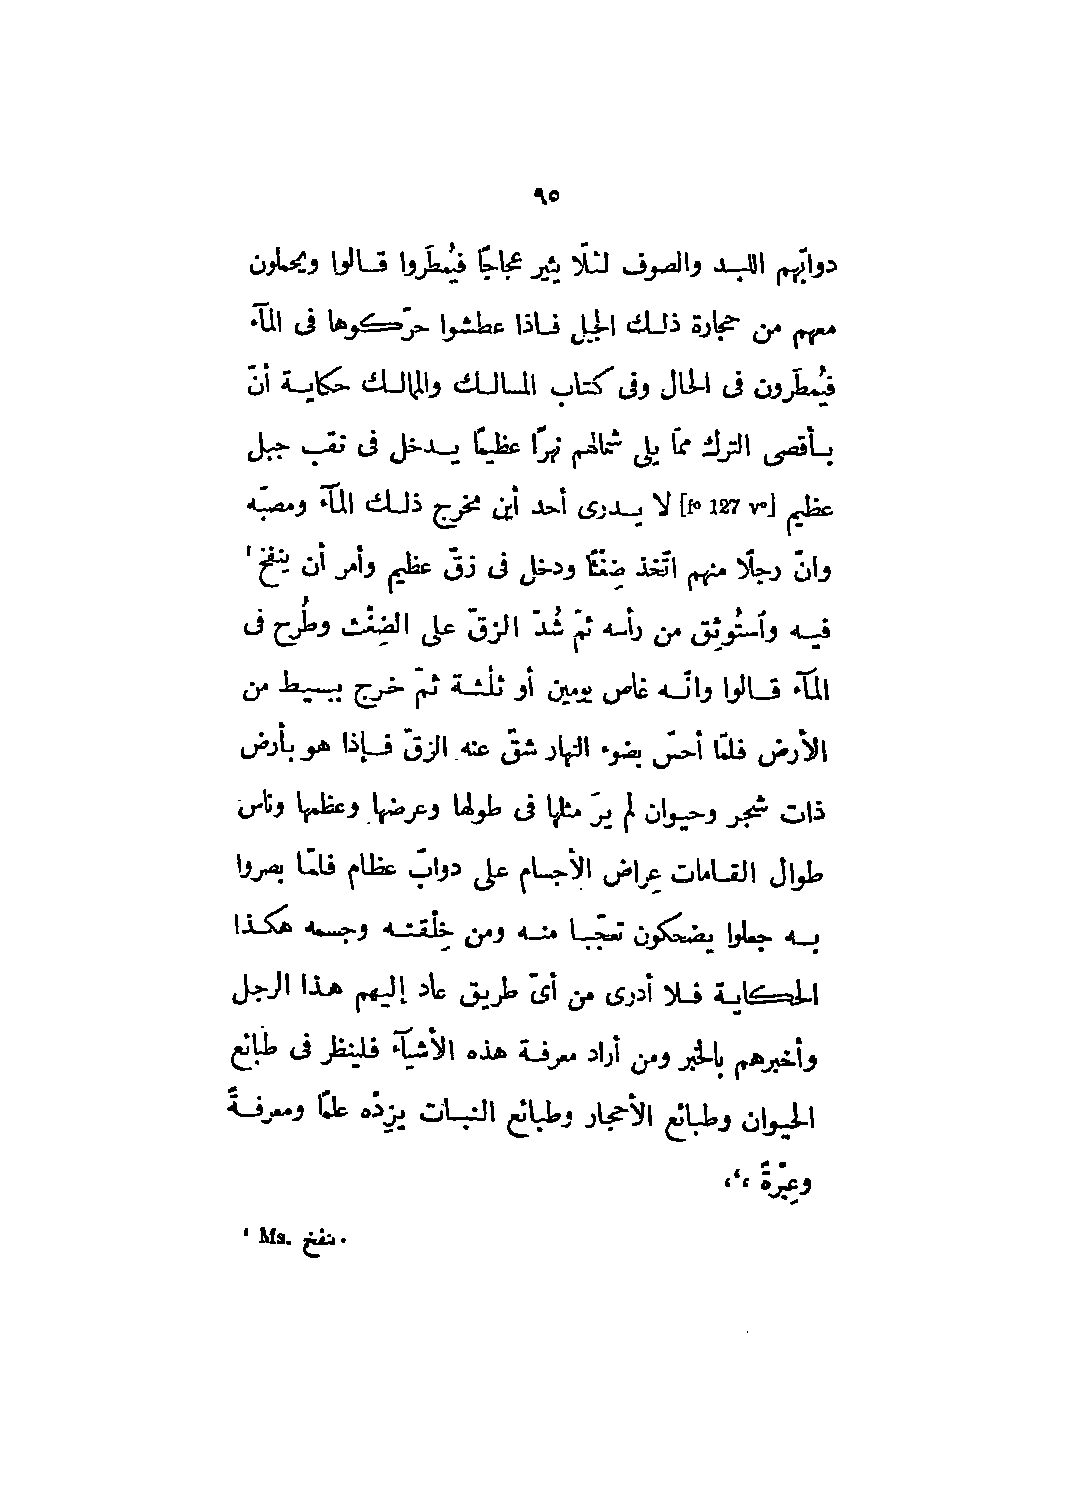 ٩٥
دوابّهم اللبد والصوف لئلّا يثير عجاجًا فيُمطَروا قالوا ويحملون
معهم من حجارة ذلك الجبل فاذا عطشوا حرّكوها فى المآء
فيُمطَرون فى الحال وفى كتاب المسالك والممالك حكاية أنّ
بأقصى الترك ممّا يلى شمالهم نهرًا عظيمًا يدخل فى نقب جبل
عظيم [fº 127 vº] لا يدرى أحد أين مخرج ذلك المآء ومصبّه
وانّ رجلًا منهم اتّخذ ضِغْثًا ودخل فى زقّ عظيم وأمر أن ينفخ¹
فيه وٱستُوثِق من رأسه ثمّ شُدّ الزقّ على الضِغْث وطُرح فى
المآء قالوا وانّه غاص يومين أو ثلثة ثمّ خرج ببسيط من
الأرض فلمّا أحسّ بضوء النهار شقّ عنه الزقّ فإذا هو بأرض
ذات شجر وحيوان لم يرَ مثلها فى طولها وعرضها وعظمها وناس
طوال القامات عِراض الأجسام على دوابّ عظام فلمّا بصروا
به جعلوا يضحكون تعجّبا منه ومن خِلْقته وجسمه هكذا
الحكاية فلا أدرى من أىّ طريق عاد إليهم هذا الرجل
وأخبرهم بالخبر ومن أراد معرفة هذه الأشيآء فلينظر فى طبائع
الحيوان وطبائع الأحجار وطبائع النبات يزِدْه علمًا ومعرفةً
وعِبْرةً ،‘،
¹ Ms. نفخ.